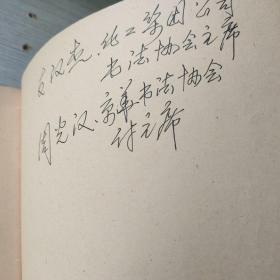 文汉杰、化工集团公司
书法协会主席
周光汉、京华书法协会
付主席